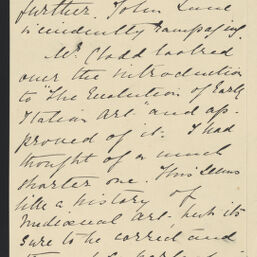 further. John Lane
is evidently rampaging.
Mr. Clodd looked
over the introduction
to "The Evolution of Early
Italian Art" and ap-
proved of it. I had
thought of a much
shorter one. This seems
like a history of
Mediaeval Art, but its
sure to be correct and